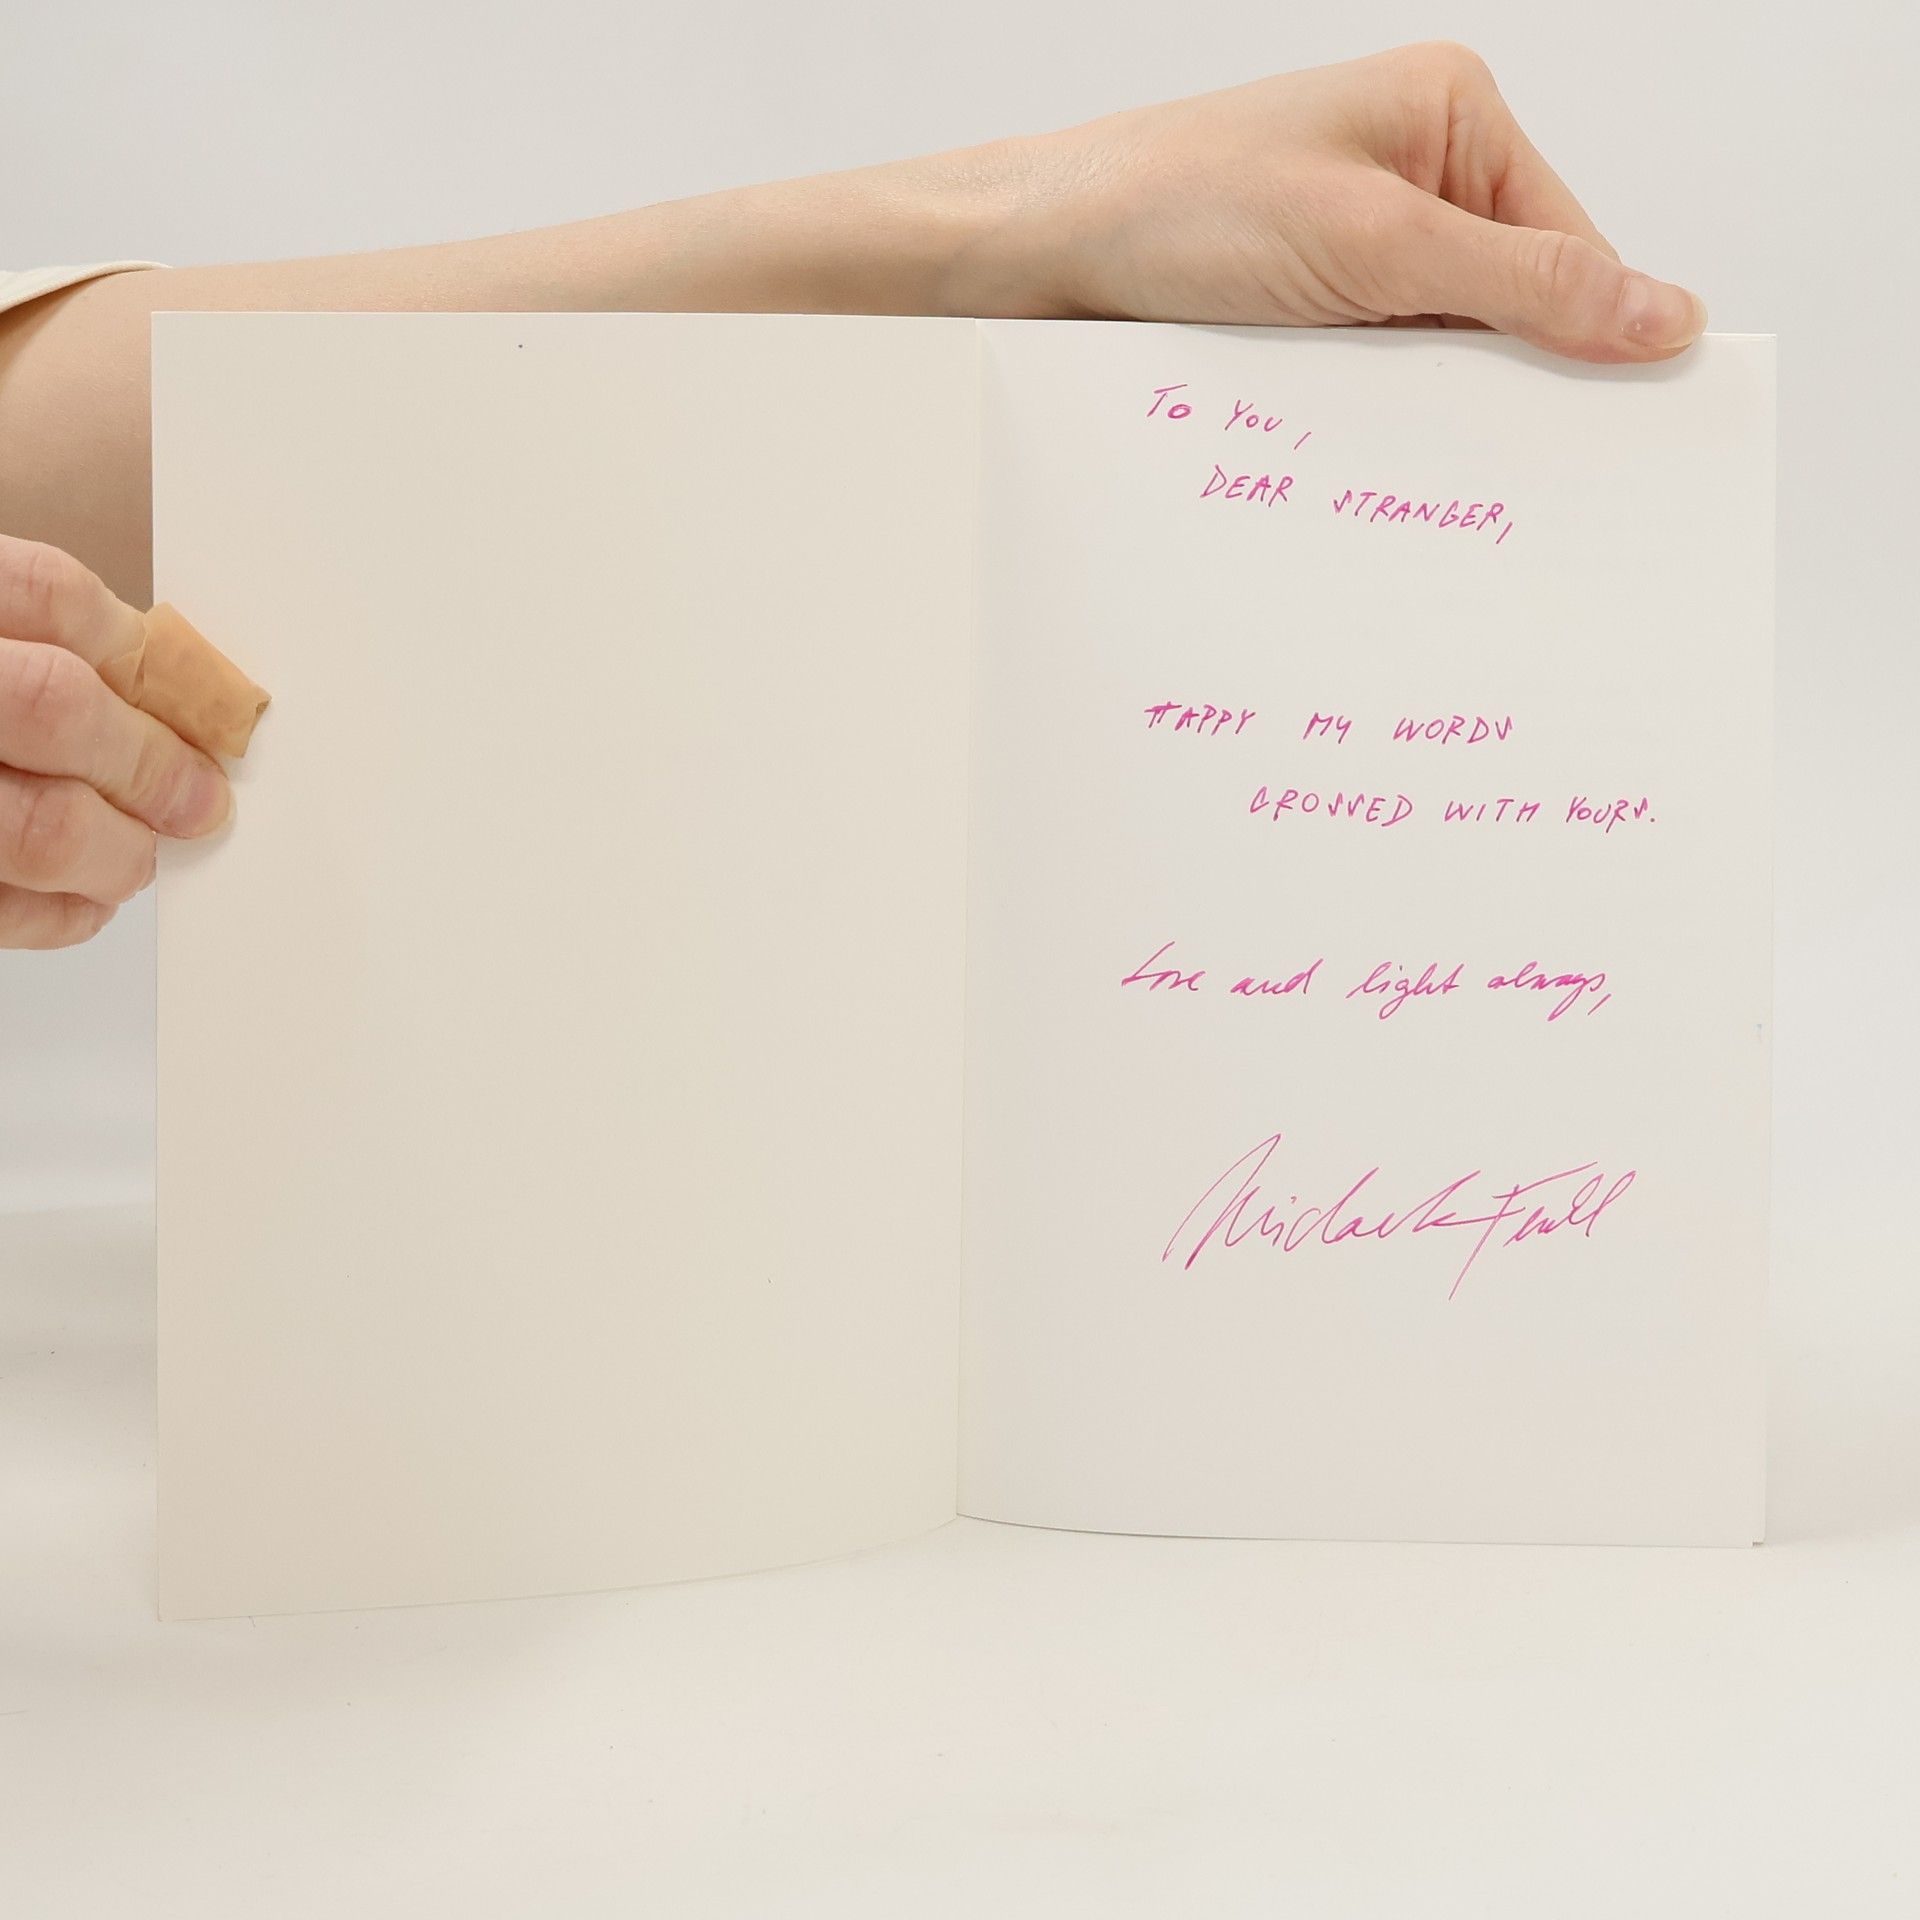 To You,
DEAR STRANGER,
HAPPY MY WORDS
CROSSED WITH YOURS.
Love and light always,